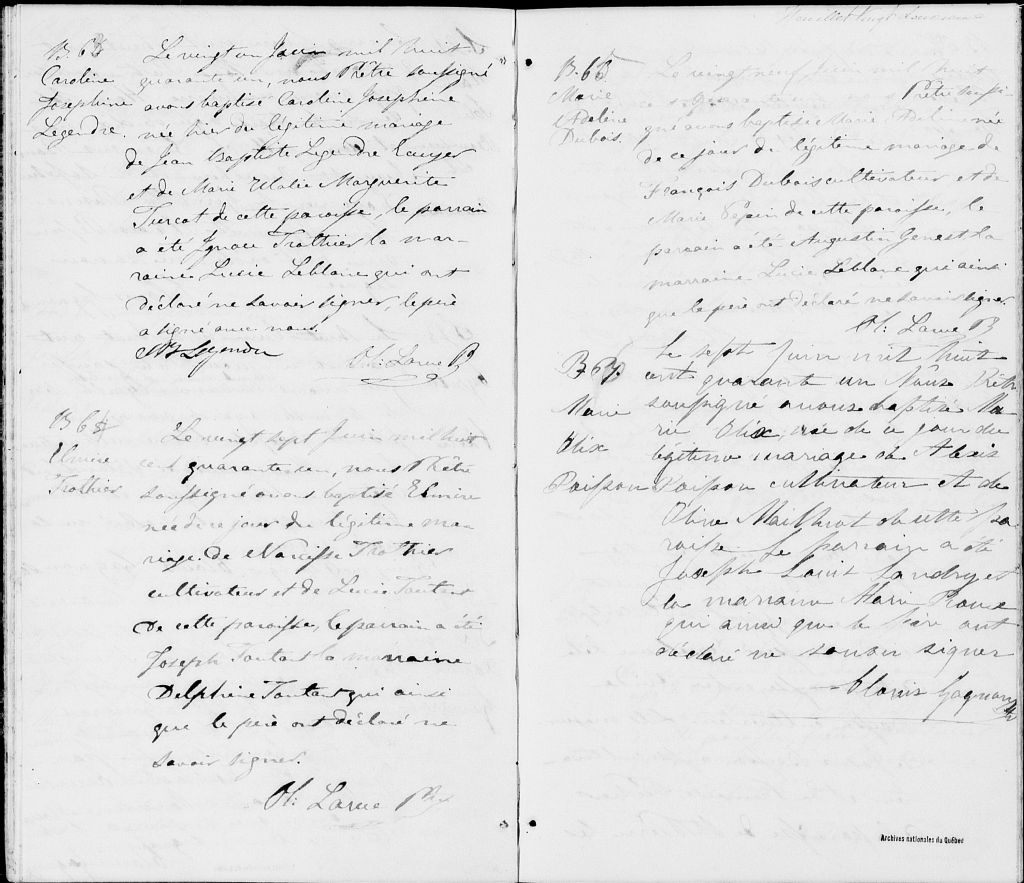 B. 63
Caroline
Josephine
Legendre.
Le vingt un Juin mil huit
quarante un, nous Prêtre soussigné
avons baptisé Caroline Josephine
née hier du légitime mariage
de Jean Baptiste Legendre Ecuyer
et de Marie Ulalie Marguerite
Turcot de cette paroisse, le parrain
a été Ignace Trothier la mar-
raine Lucie Leblanc qui ont
déclaré ne savoir signer, le père
a signé avec nous.
Ol: Larue P
B 64
Elmire
Trothier
Le vingt sept Juin mil huit
cent quarante un, nous Prêtre
soussigné avons baptisé Elmire
née de ce jour du légitime ma-
riage de Narcisse Trothier
cultivateur et de Lucie Toutant
De cette paroisse, le parrain a été
Joseph Toutant la marraine
Delphine Toutant qui ainsi
que le père ont déclaré ne
savoir signer.
Ol: Larue
B. 65
Marie
Adeline
Dubois.
Le vingt neuf Juin mil huit
quarante un Prêtre soussi-
gné avons baptisé Marie Adeline née
de ce jour du légitime mariage de
François Dubois cultivateur et de
Marie Pepin de cette paroisse, le
parrain a été Augustin Genest La
marraine Lucie Leblanc qui ainsi
que le père ont déclaré ne savoir signer
Ol: Larue P
B. 67
Marie
Olix
Poisson
Le sept Juin mil huit
cent quarante un Nous Prêtre
soussigné avons baptisé Ma
rie Olix, née de ce jour du
legitime mariage de Alexis
Poisson cultivateur et de
Olive Mailhiot de cette pa
roisse Le parrain a été
Joseph Louis Landry et
la marraine Marie Roux
qui ainsi que le père ont
déclaré ne savoir signer
Gagnon Ptr
Archives nationales du Québec